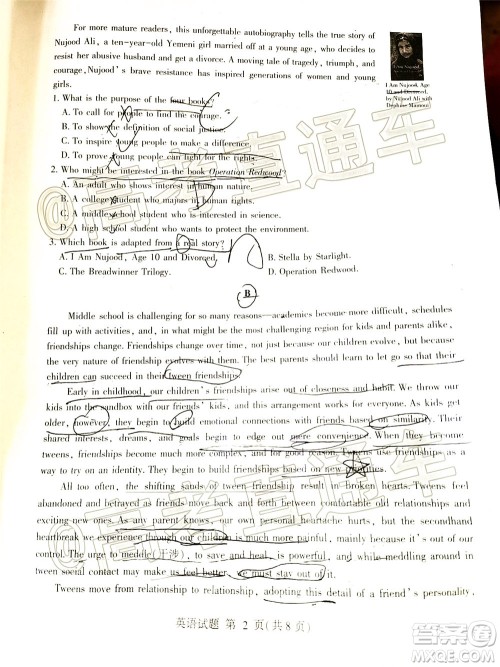 For more mature readers, this unforgettable autobiography tells the true story of
Nujood Ali, a ten-year-old Yemeni girl married off at a young age, who decides to
resist her abusive husband and get a divorce. A moving tale of tragedy, triumph, and
courage, Nujood's brave resistance has inspired generations of women and young
girls.
I Am Nujood, Age
10 and Divorced,
by Nujood Ali with
Delphine Minoui
1. What is the purpose of the four books?
A. To call for people to find the courage.
B. To show the definition of social justice.
C. To inspire young people to make a difference.
D. To prove young people can fight for the rights.
2. Who might be interested in the book Operation Redwood?
A. An adult who shows interest in human nature.
B. A college student who majors in human rights.
C. A middle school student who is interested in science.
D. A high school student who wants to protect the environment.
3. Which book is adapted from a real story?
A. I Am Nujood, Age 10 and Divorced.
B. Stella by Starlight.
C. The Breadwinner Trilogy.
D. Operation Redwood.
B
Middle school is challenging for so many reasons—academics become more difficult, schedules
fill up with activities, and, in my opinion, the most challenging region for kids and parents alike,
friendships change. Friendships change, not just because our children evolve, but because
the very nature of friendship evolves with them. The best parents should learn to let go so that their
children can succeed in their tween friendships.
Early in childhood, our children's friendships arise out of closeness and habit. We throw our
kids into the sandbox with our friends' kids, and this arrangement works for everyone. As kids get
older, however, they begin to build emotional connections with friends based on similarity. Their
shared interests, dreams, and goals begin to edge out mere convenience. When they become
tweens, friendships become much more complex, and for good reason. Tweens use friendships as a
way to try on an identity. They begin to build friendships based on new qualities.
All too often, the shifting sands of tween friendship result in broken hearts. Tweens feel
abandoned and betrayed as friends move between comfortable old relationships and
exciting new ones. As any parent knows, our own personal heartache hurts, but the secondhand
heartbreak we experience through our children is much more painful, mainly because it is out of our
control. The urge to meddle(干涉), to save and heal, is powerful, and while meddling in
tween social contact may make us feel better, we must stay out of it.
Tweens move from relationship to relationship, adopting this detail of a friend's personality,
英语试题 第 2 页(共 8 页)
@高考直通车
@高考直通车
答案圈